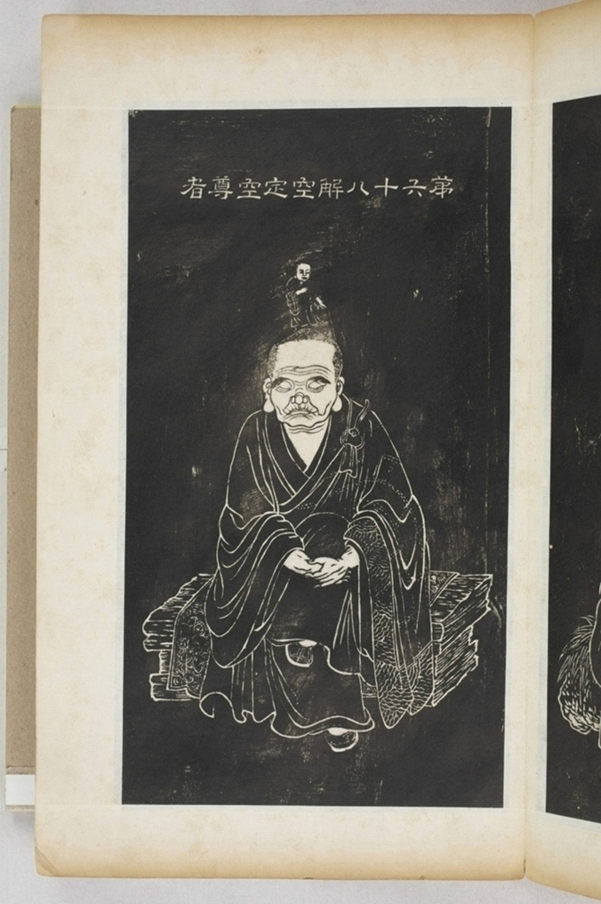 第六十八解空定空尊者